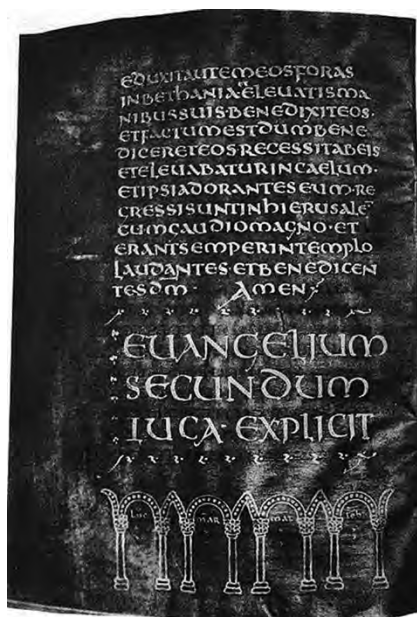 EDUXITAUTEMEOSFORAS
INBETHANIA·ELEUATISMA
NIBUSSUIS·BENEDIXITEOS·
ETFACTUMESTDUMBENE
DICERETEOSRECESSITABEIS
ETELEUABATURINCAELUM·
ETIPSIADORANTESEUM·RE
GRESSISUNTINHIERUSALĒ
CUMGAUDIOMAGNO·ET
ERANTSEMPERINTEMPLO
LAUDANTES·ETBENEDICEN
TESDM· AMEN
EUANGELIUM
SECUNDUM
LUCA· EXPLICIT
LUC MAR MAT IOH